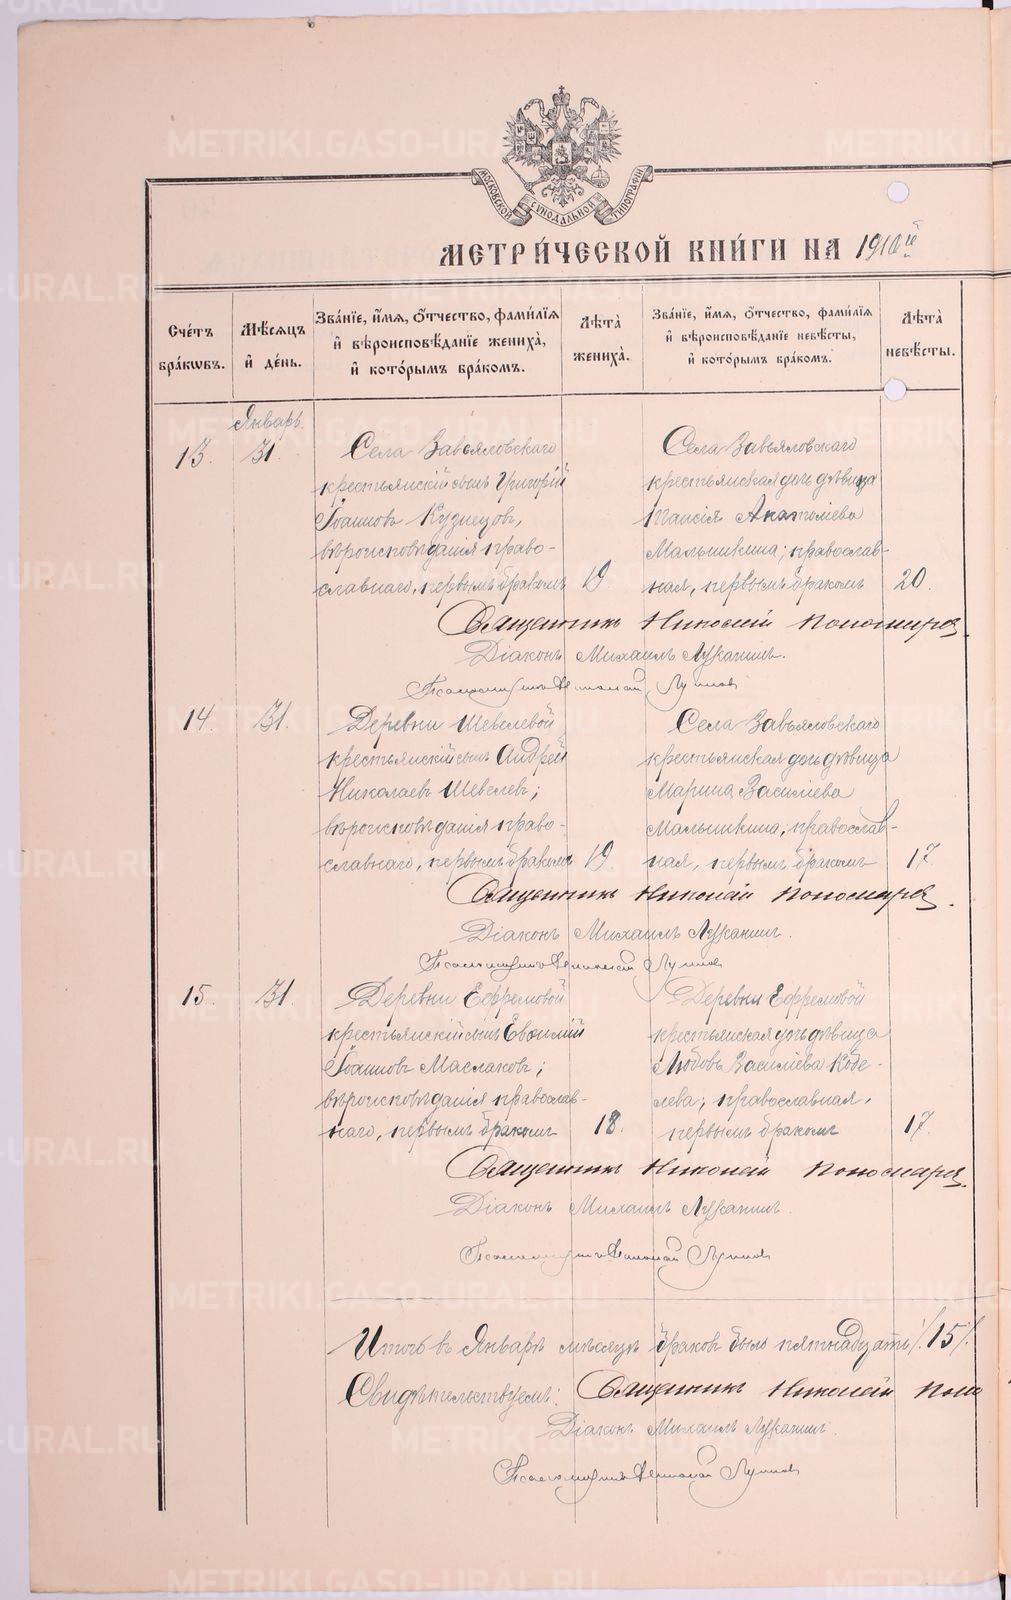 МОСКОВСКОЙ СѴНОДАЛЬНОЙ ТИПОГРАФІИ
МЕТРИ́ЧЕСКОЙ КНИ́ГИ НА 1910й
Сче́тъ бра́кѡвъ.
Мѣ́сѧцъ и҆ де́нь.
Зва́нїе, и҆́мѧ, ѻ҆́тчество, фами́лїѧ и҆ вѣроисповѣ́данїе жениха̀, и҆ кото́рымъ бра́комъ.
Лѣта̀ жениха̀.
Зва́нїе, и҆́мѧ, ѻ҆́тчество, фами́лїѧ и҆ вѣроисповѣ́данїе невѣ́сты, и҆ кото́рымъ бра́комъ.
Лѣта̀ невѣ́сты.
Январь.
13. 31.
Села Завьяловскаго
крестьянскій сынъ Григорій
Іоанновъ Кузнецовъ,
вѣроисповѣданія право-
славнаго, первымъ бракомъ 19.
Села Завьяловскаго
крестьянская дочь дѣвица
Таисія
Мальшикина; православ-
ная, первымъ бракомъ 20.
Священникъ Николай Пономарев.
Діаконъ Михаилъ Луканинъ.
Псаломщикъ Лупповъ
14. 31.
Деревни Шевелевой
крестьянскій сынъ Андрей
Николаевъ Шевелевъ;
вѣроисповѣданія право-
славнаго, первымъ бракомъ 19
Села Завьяловскаго
крестьянская дочь дѣвица
Марина Василіева
Мальшикина; православ-
ная, первымъ бракомъ 17
Священникъ Николай Пономарев.
Діаконъ Михаилъ Луканинъ.
Псаломщикъ Лупповъ
15. 31.
Деревни Ефремовой
крестьянскій сынъ Евѳимій
Іоанновъ Маслаковъ;
вѣроисповѣданія православ-
наго, первымъ бракомъ 18.
Деревни Ефремовой
крестьянская дочь дѣвица
Любовь Василіева Кобе-
лева; православная,
первымъ бракомъ 17.
Священникъ Николай Пономарев.
Діаконъ Михаилъ Луканинъ.
Псаломщикъ Лупповъ
Итого въ Январѣ мѣсяцѣ браковъ было пятнадцать /15/.
Свидѣтельствуемъ: Священникъ Николай Поно
Діаконъ Михаилъ Луканинъ.
Псаломщикъ Лупповъ
METRIKI.GASO-URAL.RU